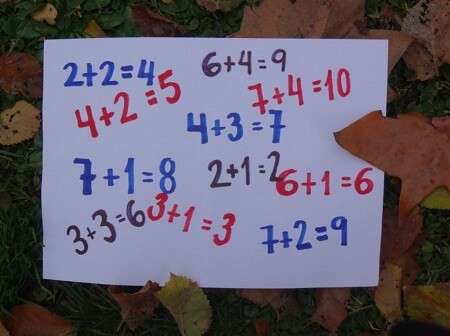 2+2=4
6+4=9
4+2=5
7+4=10
4+3=7
7+1=8
2+1=2
6+1=6
3+3=6
3+1=3
7+2=9